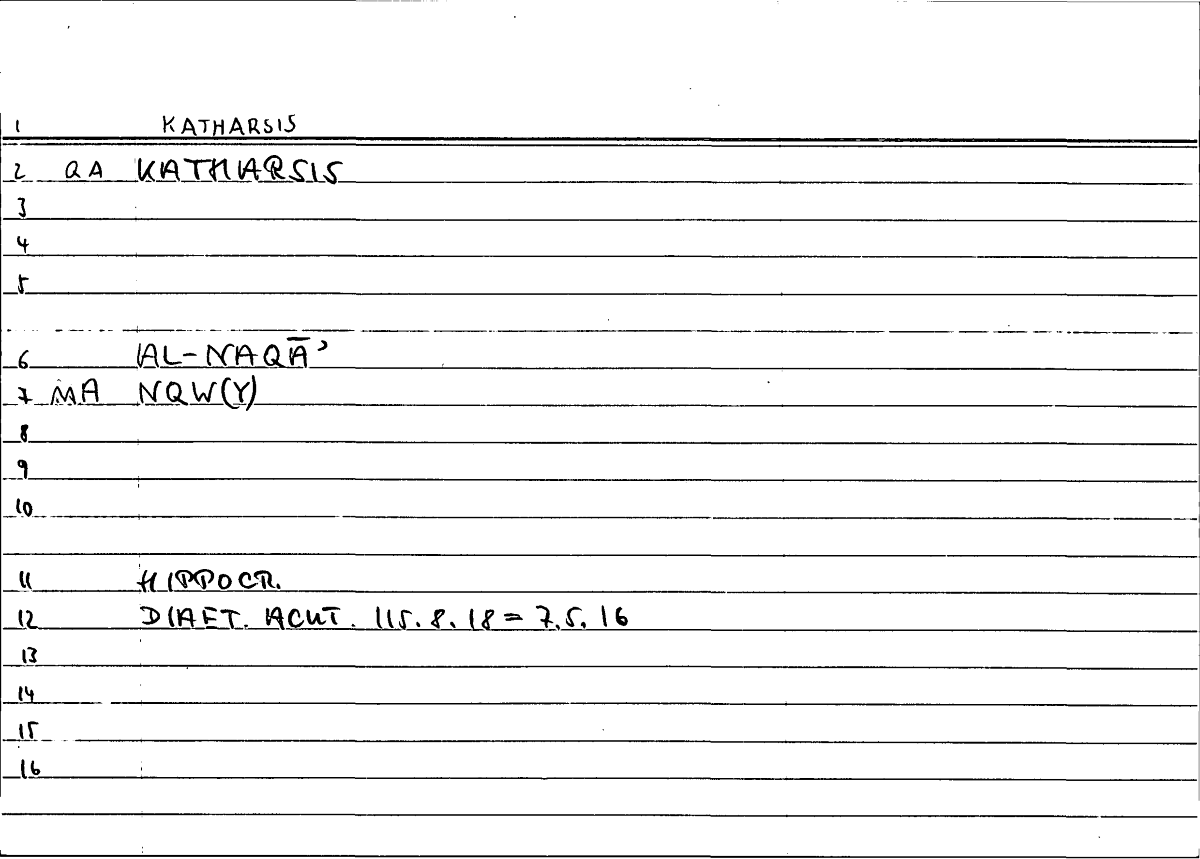 1 KATHARSIS
2 QA KATHARSIS
3
4
5
6 AL-NAQĀʾ
7 MA NQW(Y)
8
9
10
11 HIPPOCR.
12 DIAET. ACUT. 115.8.18 = 7.5.16
13
14
15
16